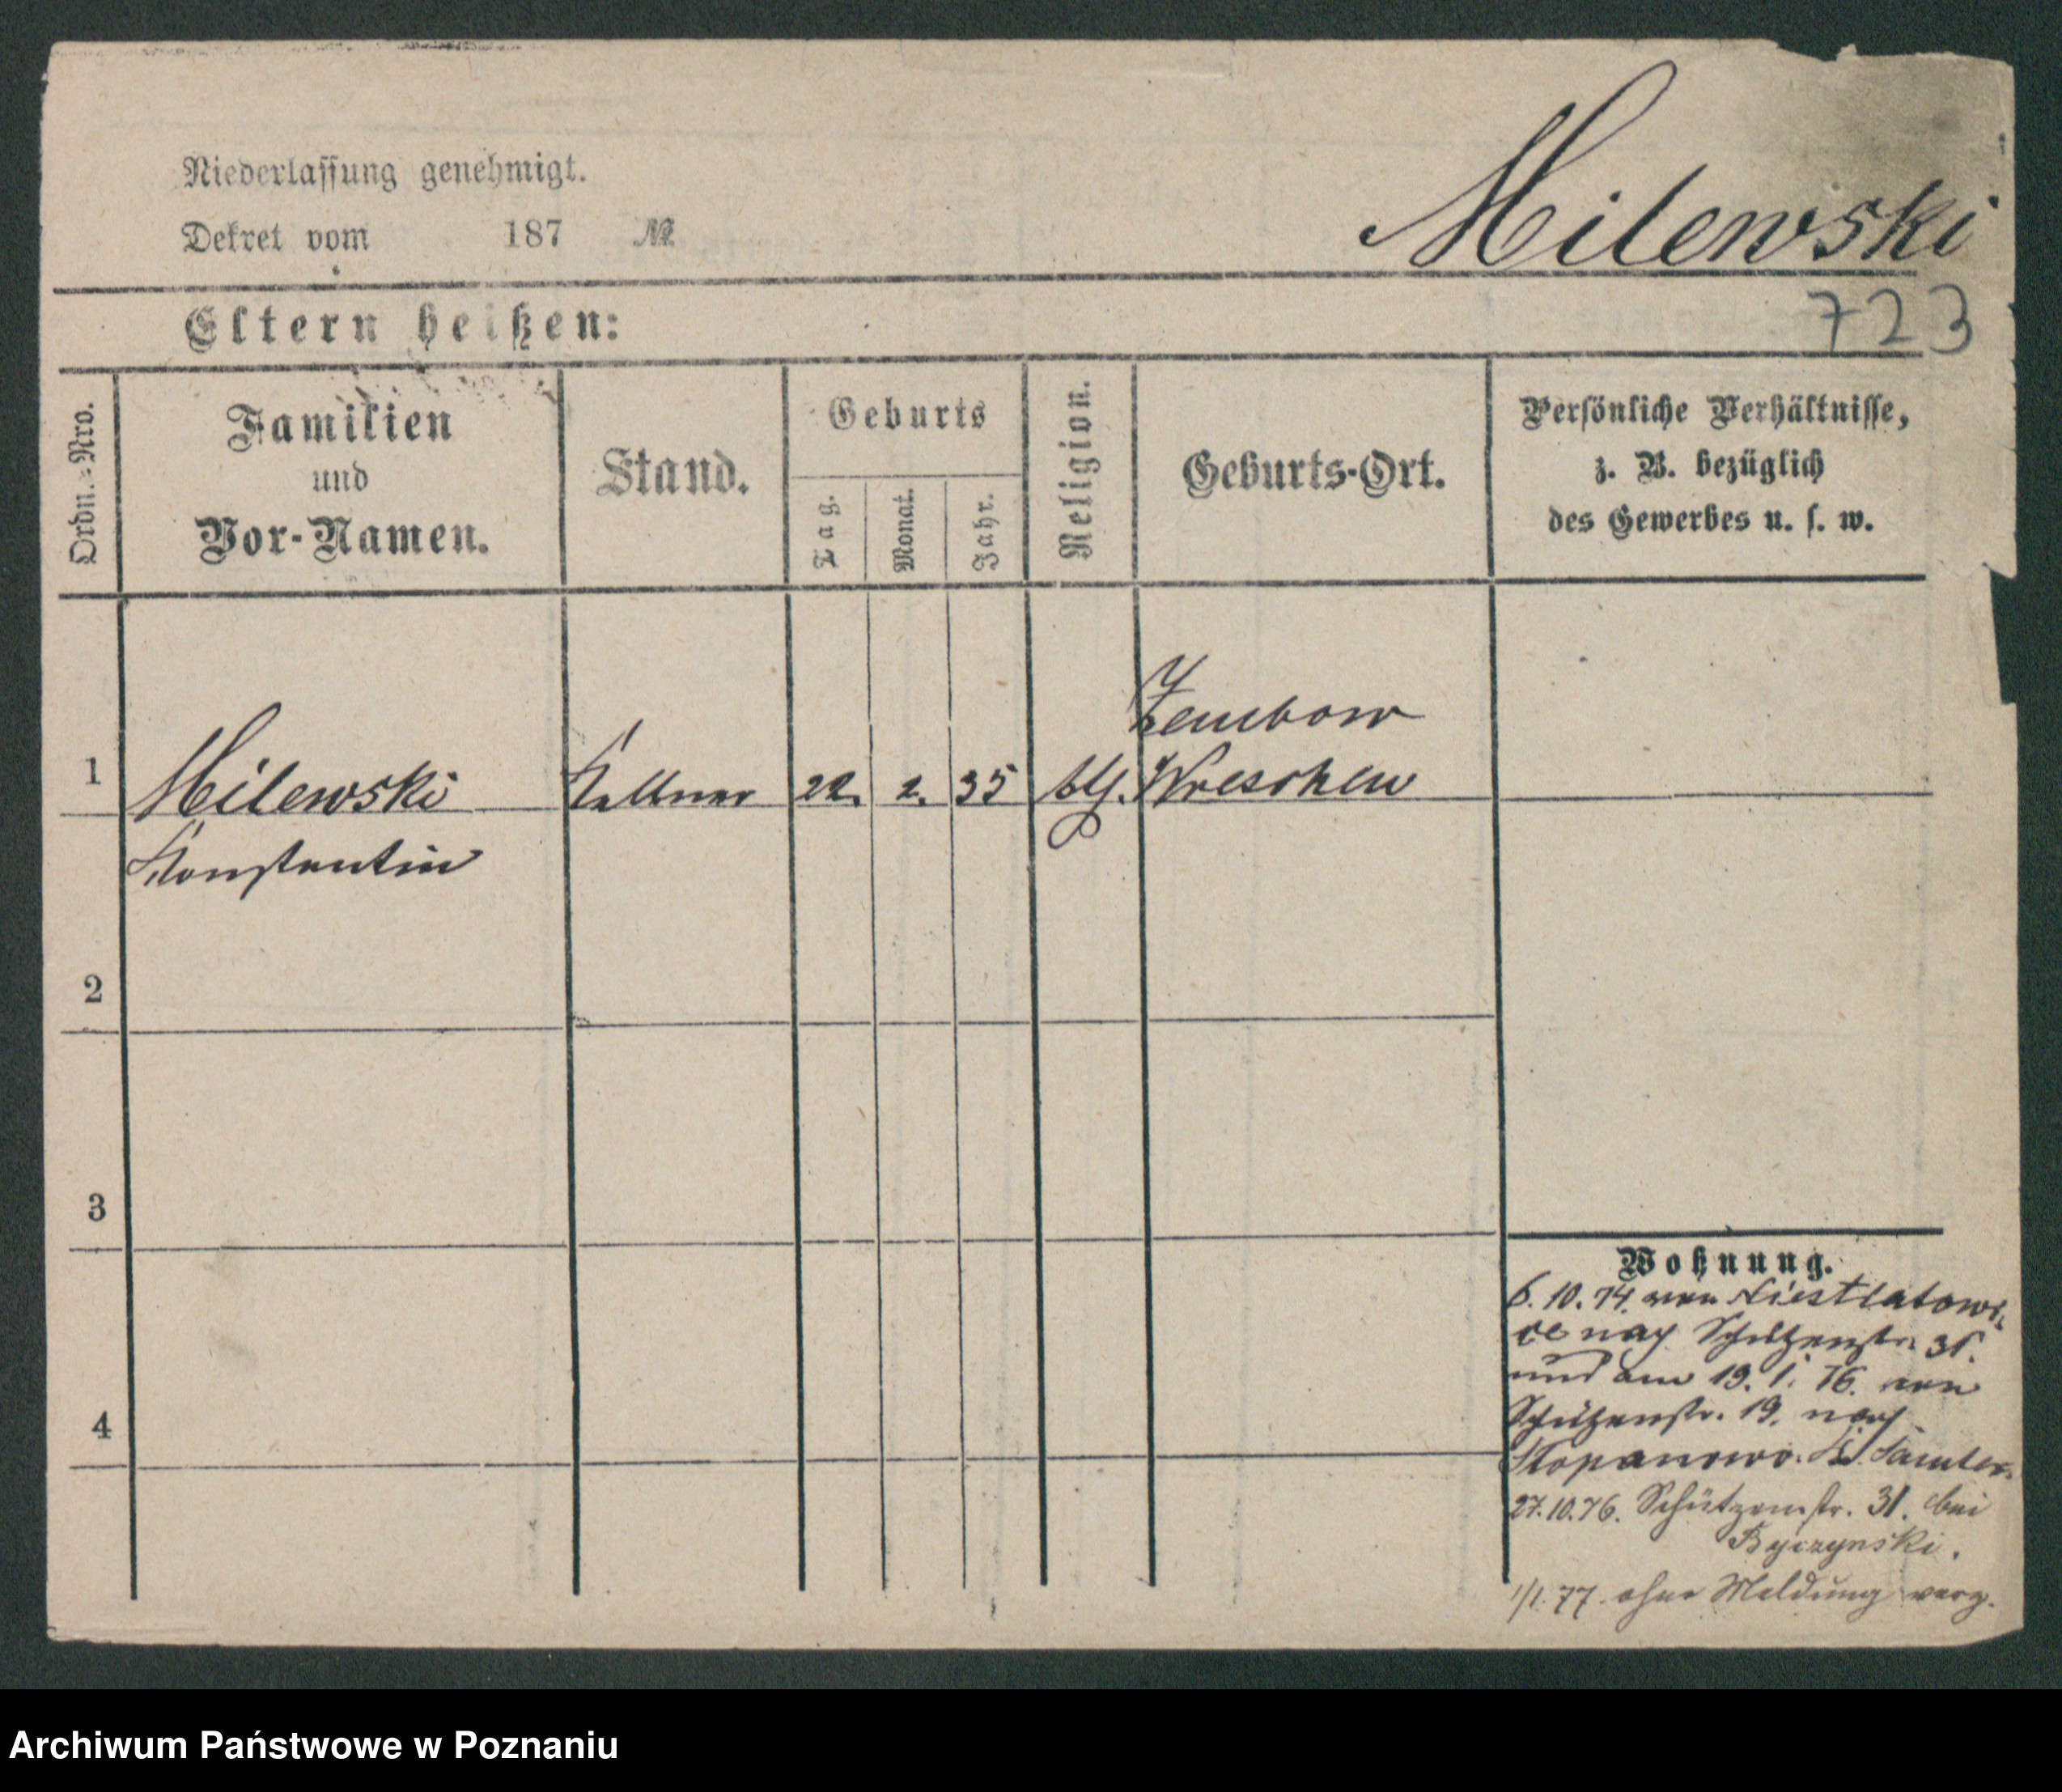 Milewski
Niederlassung genehmigt.
Dekret vom 187 №
723
Eltern heißen:
Ordn.=Nro.
Familien
und
Vor-Namen.
Stand.
Geburts
Tag.
Monat.
Jahr.
Religion.
Geburts-Ort.
Persönliche Verhältnisse,
z. B. bezüglich
des Gewerbes u. s. w.
Zembow
1 Milewski Kellner 22. 2. 35 kth. Wreschen
Konstantin
2
3
4
Wohnung.
6. 10. 74. von
ce nach Schützenstr. 31.
und am 19. 1. 76. von
Schützenstr. 19. nach
Stopanowo. Kr. Samter.
27.10.76. Schützenstr. 31. bei
Byczynski.
1/1. 77. ohne Meldung verz.
Archiwum Państwowe w Poznaniu